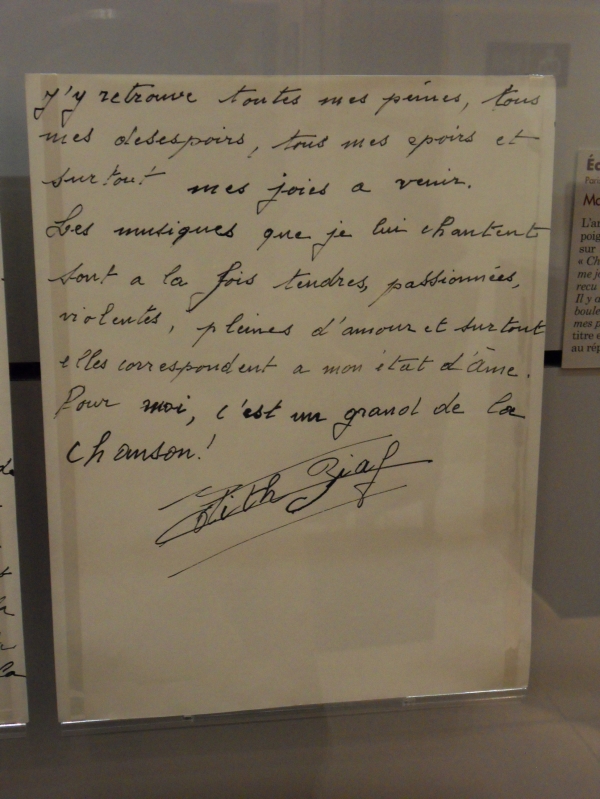 J'y retrouve toutes mes peines, tous
mes desespoirs, tous mes epoirs et
surtout mes joies a venir.
Les musiques que je lui chantent
sont a la fois tendres, passionnées,
violentes, pleines d'amour et surtout
elles correspondent a mon état d'Âme.
Pour moi, c'est un grand de la
chanson!
Edith Piaf
de
la
Éd
Paris
Ma
L'ar
poig
sur
« Ch
me jo
recu
Il y a
boule
mes p
titre e
au rép